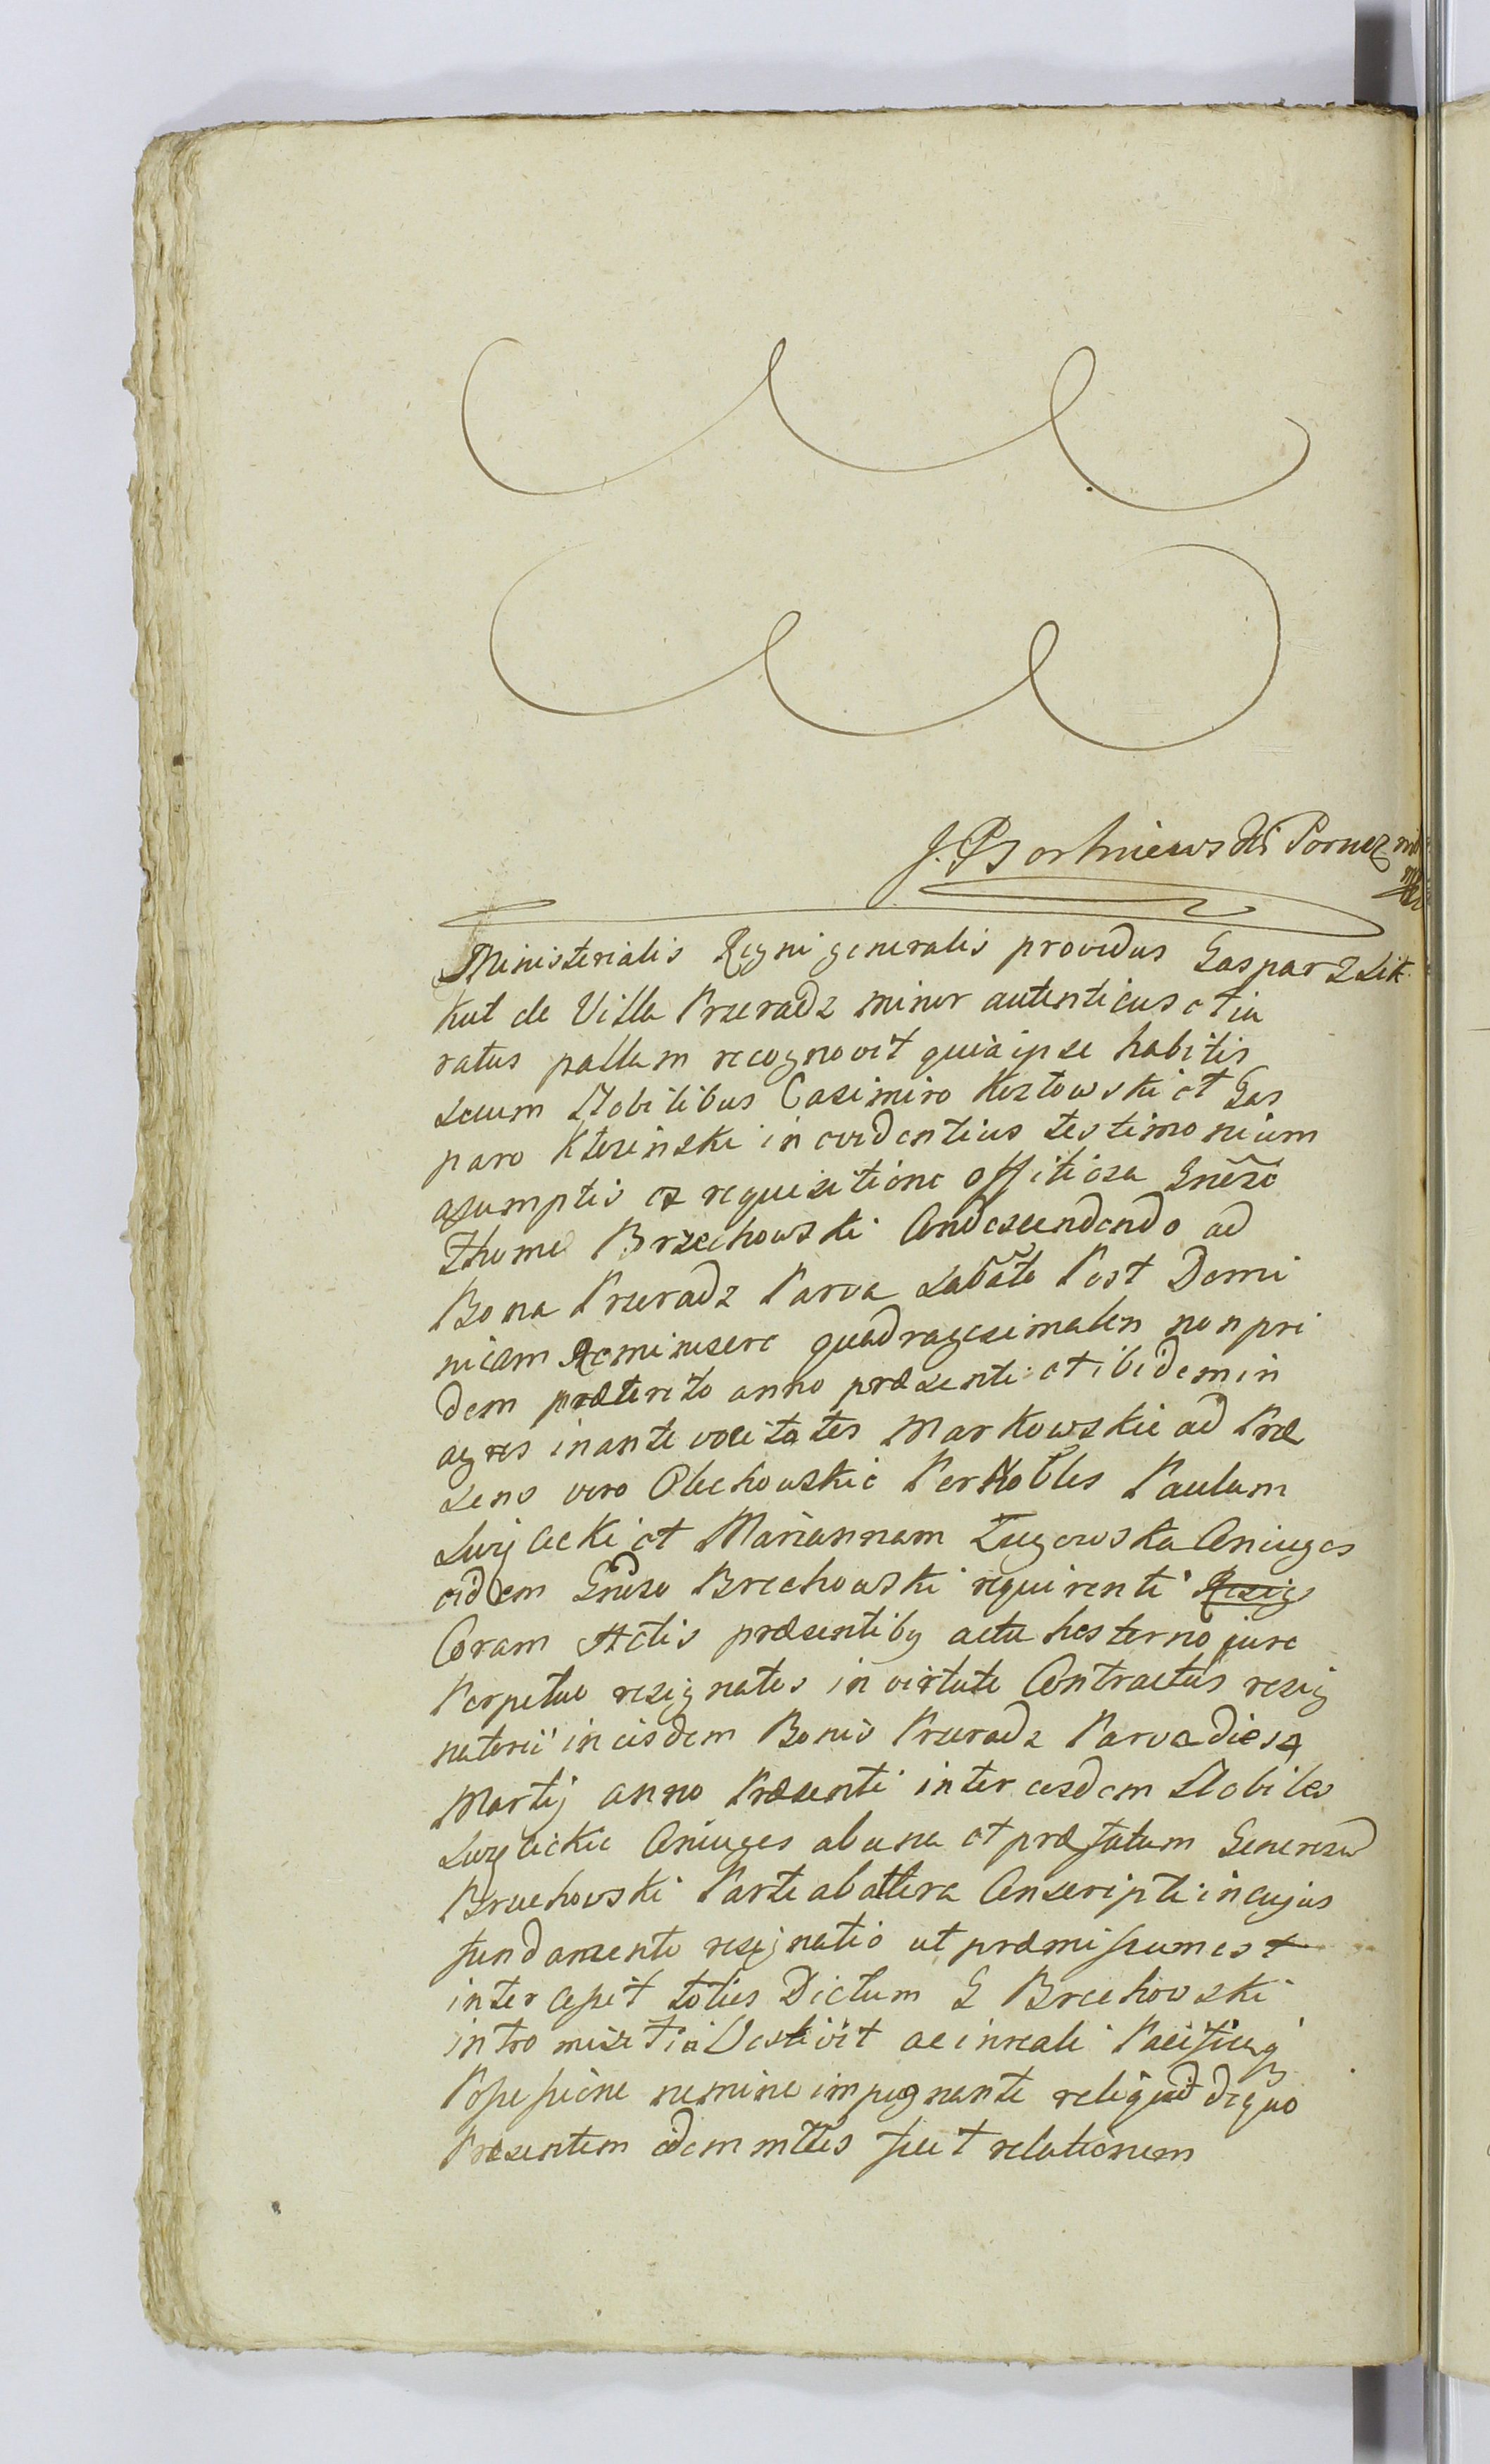 J. Borkniewski Porucznik
Ministerialis Regni generalis providus Gaspar Zlik
kut de Villa Przeradz minor autenticus et iu
ratus pallam recognovit quia ipse habitis
secum Nobilibus Casimiro Kozłowski et Gas
paro Kłosinski in evidentius testimonium
assumptis ex requisitione offitiosa Gnẽse
Thome Brzechowski Condescendendo ad
Bona Przeradz Parva Sabãto Post Domi
nicam Reminiscere quadragesimalem non pri
dem præterito anno præsenti et ibidem in
agros inante vocitatos Markowskie ad Præ
sens vero Olechowskie Per Nobles Paulum
et Mariannam Conjuges
eidem Gnẽso Brechowski requirenti Resig
Coram Actis præsentiby actu hesterno jure
Perpetuo resignatos in virtute Contractus resig
natorii in eisdem Bonis Przeradz Parva die 14
Martij anno Præsenti inter eosdem Nobiles
Conjuges ab una et præfatum Generosum
Brzechowski Parte ab altera Conscripti in cujus
fundamento resignatio ut præmissum est
intercessit toties Dictum G Brcehovski
intromisit in Vestivit ac in reali Pacificaq
Possessione nemine impugnante reliquid de quo
Præsentem idem mttlis fecit relationem